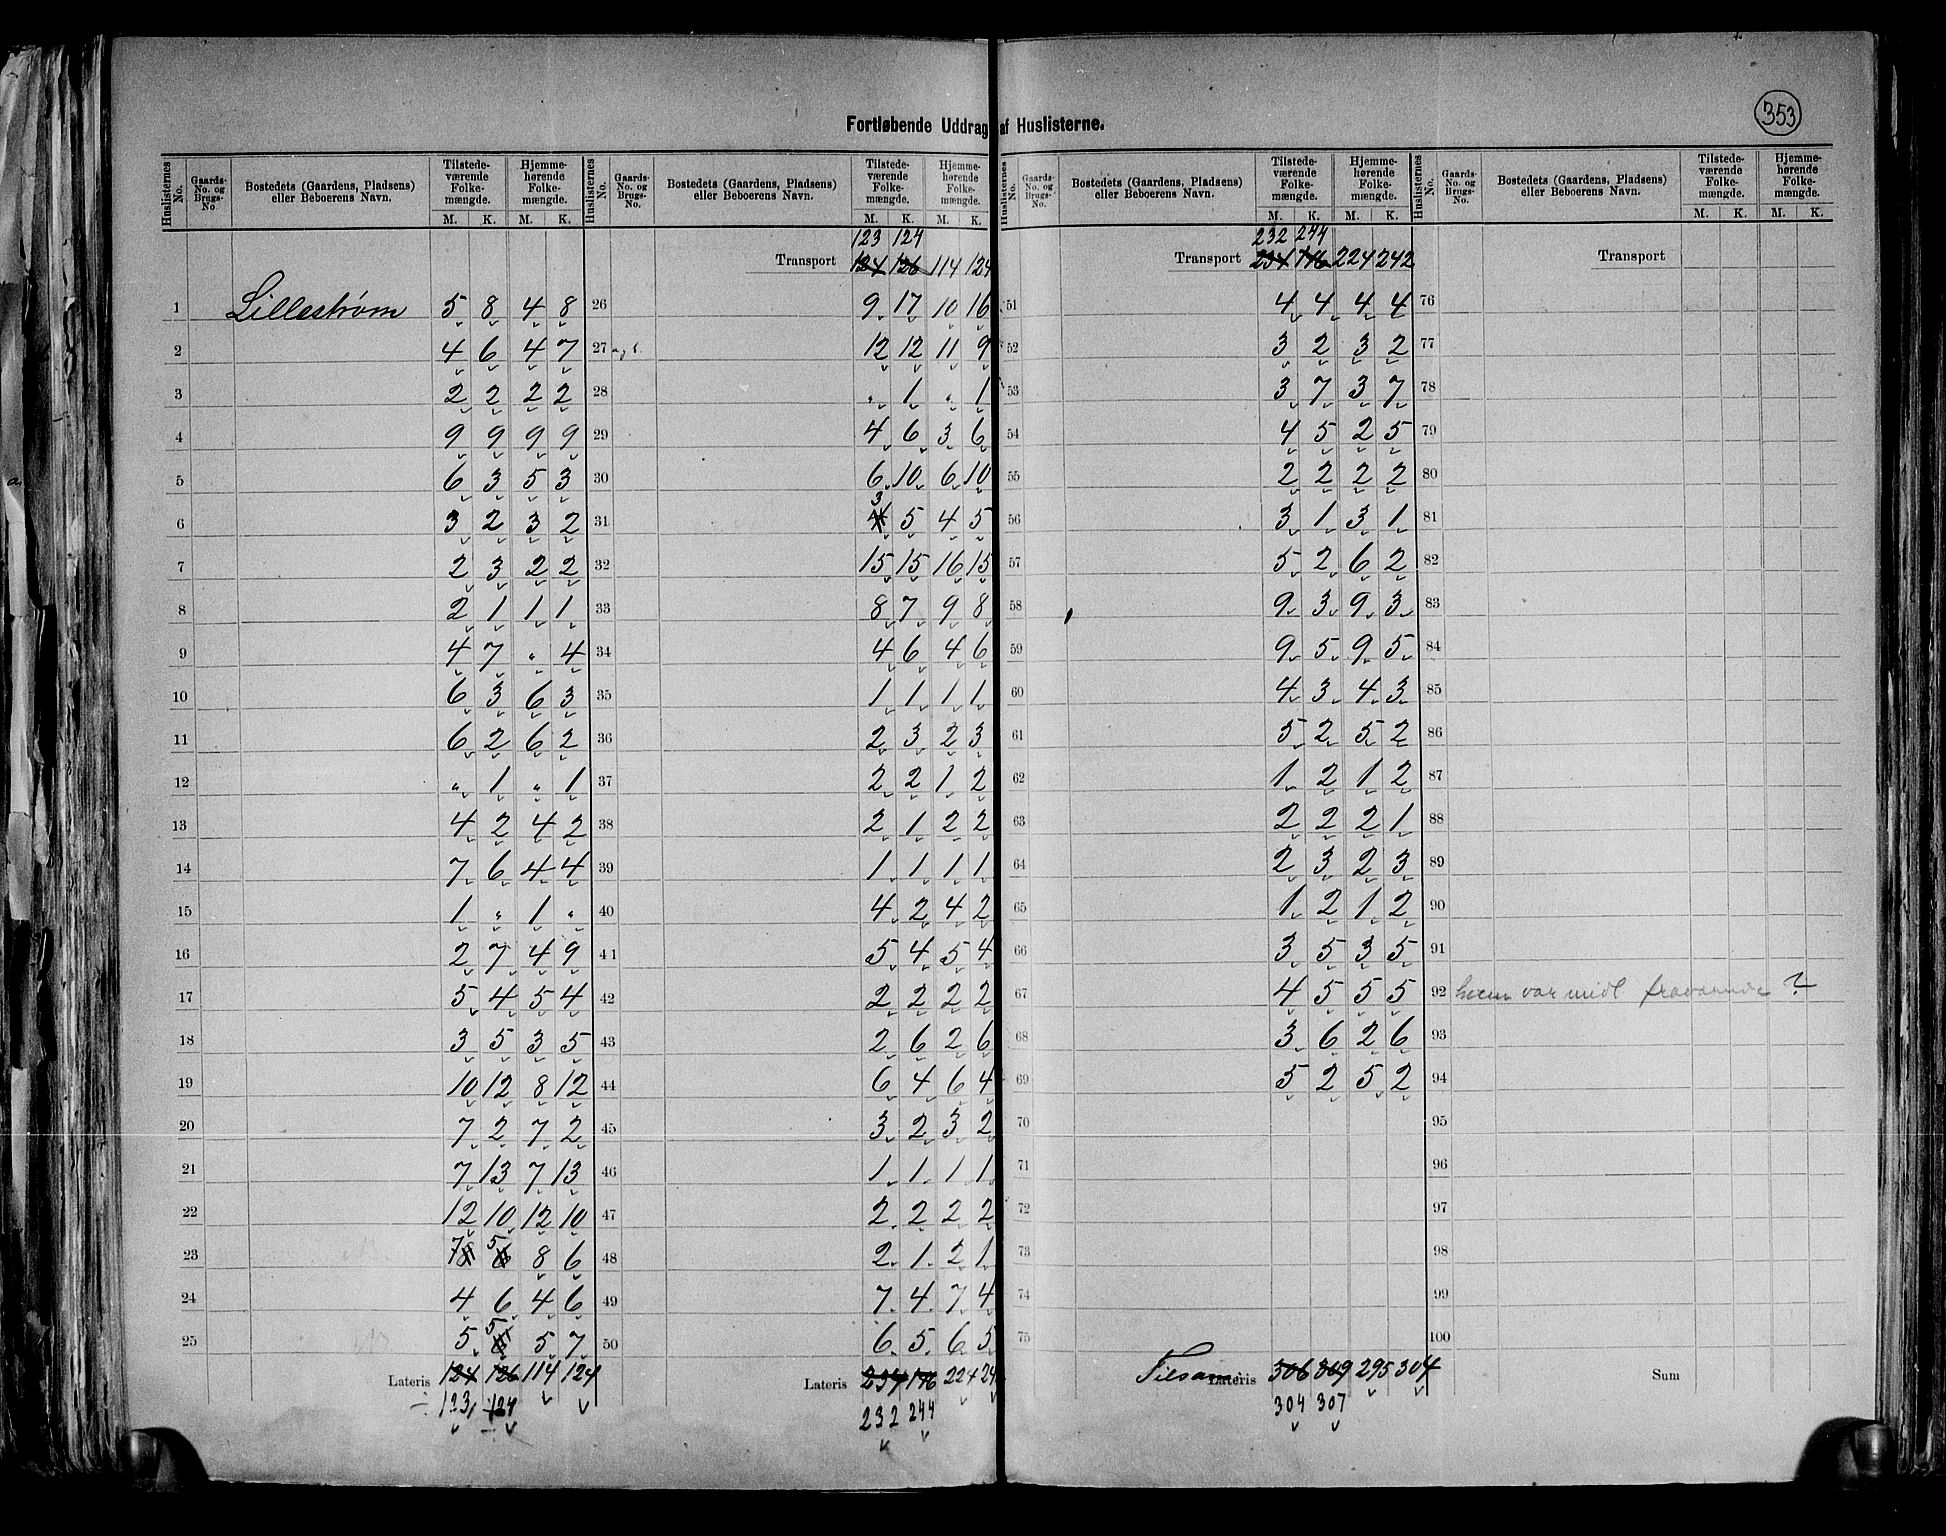 353
Fortløbende Uddrag af Huslisterne.
Huslisternes No. | Gaards-No. og Brugs-No | Bostedets (Gaardens, Pladsens) eller Beboerens Navn. | Tilstedeværende Folkemængde. M. K. | Hjemmehørende Folkemængde. M. K.
1 Lillestrøm 5 8 4 8
2 4 6 4 7
3 2 2 2 2
4 9 9 9 9
5 6 3 5 3
6 3 2 3 2
7 2 3 2 2
8 2 1 1 1
9 4 7 " 4
10 6 3 6 3
11 6 2 6 2
12 " 1 " 1
13 4 2 4 2
14 7 6 4 4
15 1 " 1 "
16 2 7 4 9
17 5 4 5 4
18 3 5 3 5
19 10 12 8 12
20 7 2 7 2
21 7 13 7 13
22 12 10 12 10
23 7 5 8 6
24 4 6 4 6
25 5 5 5 7
Lateris 124 126 114 124
÷ 123 124
Huslisternes No. | Gaards-No. og Brugs-No. | Bostedets (Gaardens, Pladsens) eller Beboerens Navn. | Tilstedeværende Folkemængde. M. K. | Hjemmehørende Folkemængde. M. K.
123 124
Transport 124 126 114 124
26 9 17 10 16
27 12 12 11 9
28 " 1 " 1
29 4 6 3 6
30 6 10 6 10
31 3 5 4 5
32 15 15 16 15
33 8 7 9 8
34 4 6 4 6
35 1 1 1 1
36 2 3 2 3
37 2 2 1 2
38 2 1 2 2
39 1 1 1 1
40 4 2 4 2
41 5 4 5 4
42 2 2 2 2
43 2 6 2 6
44 6 4 6 4
45 3 2 3 2
46 1 1 1 1
47 2 2 2 2
48 2 1 2 1
49 7 4 7 4
50 6 5 6 5
Lateris 234 224 24
232 244
Huslisternes No. | Gaards-No. og Brugs-No. | Bostedets (Gaardens, Pladsens) eller Beboerens Navn. | Tilstedeværende Folkemængde. M. K. | Hjemmehørende Folkemængde. M. K.
232 244
Transport 234 224 242
51 4 4 4 4
52 3 2 3 2
53 3 7 3 7
54 4 5 2 5
55 2 2 2 2
56 3 1 3 1
57 5 2 6 2
58 9 3 9 3
59 9 5 9 5
60 4 3 4 3
61 5 2 5 2
62 1 2 1 2
63 2 2 2 1
64 2 3 2 3
65 1 2 1 2
66 3 5 3 5
67 4 5 5 5
68 3 6 2 6
69 5 2 5 2
70
71
72
73
74
75
Tilsam Lateris 306 309 295 304
304 307
Huslisternes No. | Gaards-No. og Brugs-No. | Bostedets (Gaardens, Pladsens) eller Beboerens Navn. | Tilstedeværende Folkemængde. M. K. | Hjemmehørende Folkemængde. M. K.
Transport
76
77
78
79
80
81
82
83
84
85
86
87
88
89
90
91
92 hvem var midl fraværende ?
93
94
95
96
97
98
99
100
Sum